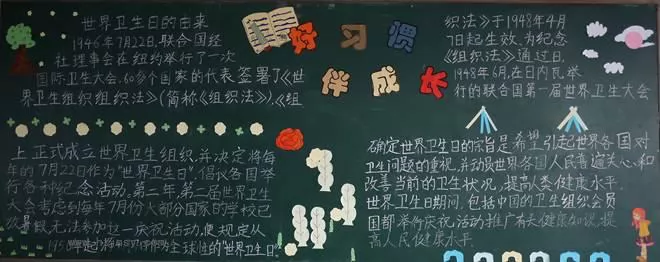 世界卫生日的由来
1946年7月22日,联合国经
社理事会在纽约举行了一次
国际卫生大会,60多个国家的代表签署了《世
界卫生组织组织法》(简称《组织法》),《组
好习惯
伴成长
织法》于1948年4月
7日起生效,为纪念
《组织法》通过日,
1948年6月,在日内瓦举
行的联合国第一届世界卫生大会
上正式成立世界卫生组织,并决定将每
年的7月22日作为“世界卫生日”,倡议各国举
行各种纪念活动,第二年,第二届世界卫生
大会考虑到每年7月份大部分国家的学校已
放暑假,无法参加这一庆祝活动,便规定从
1950年起将 作为全球性的“世界卫生日。
确定世界卫生日的宗旨是希望引起世界各国对
卫生问题的重视,并动员世界各国人民普遍关心和
改善当前的卫生状况,提高人类健康水平.
世界卫生日期间,包括中国的卫生组织会员
国都举行庆祝活动,推广有关健康知识,提
高人民健康水平.